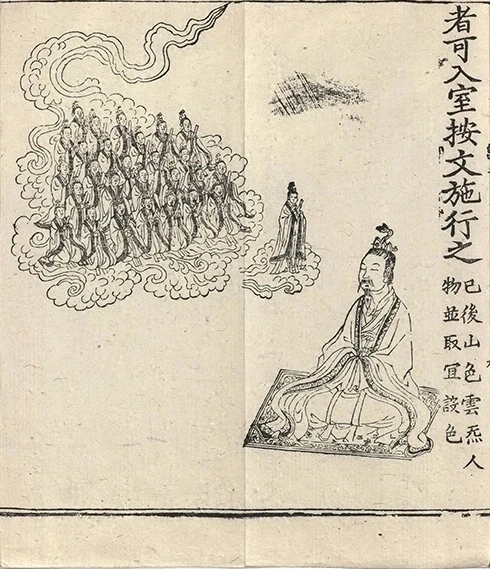 者可入室按文施行之
已後山色雲炁人
物並取冝設色